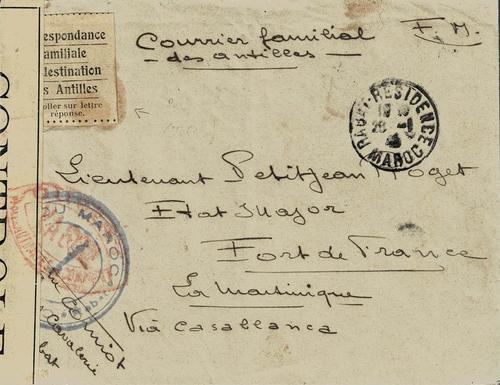 espondance
amiliale
destination
s Antilles
oller sur lettre
réponse.
Courrier familial
- des antilles -
F. M.
RABAT-RESIDENCE
MAROC
Lieutenant Petitjean Roget
Etat Major
Fort de France
La Martinique
Via Casablanca
MAROC
Cavalerie
bat
CONTROLE